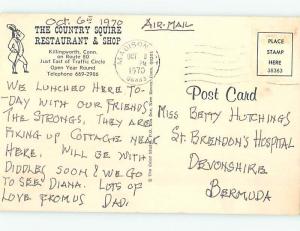 Oct. 6th 1970
AIR-MAIL
THE COUNTRY SQUIRE
RESTAURANT & SHOP
Killingworth, Conn.
on Route 80
Just East of Traffic Circle
Open Year Round
Telephone 669-2986
MADISON
OCT
1970
PLACE
STAMP
HERE
38363
Post Card
WE LUNCHED HERE TO-
DAY WITH OUR FRIENDS
THE STRONGS, THEY ARE
FIXING UP COTTAGE NEAR
HERE. WILL BE WITH
DIDDLES SOON & WE GO
TO SEE DIANA. LOTS OF
LOVE FROM US DAD.
MISS BETTY HUTCHINGS
ST. BRENDON'S HOSPITAL
DEVONSHIRE
BERMUDA